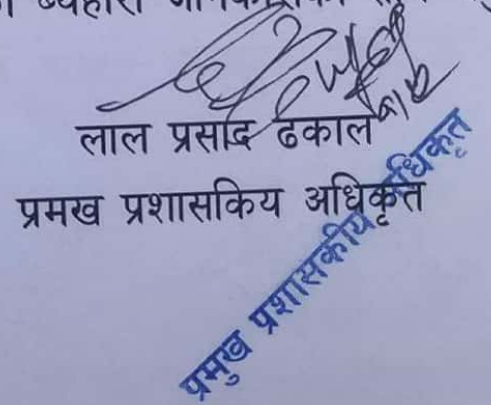 व्यहोरा
लाल प्रसाद ढकाल
प्रमख प्रशासकिय अधिकृत
प्रमुख प्रशासकीय अधिकृत